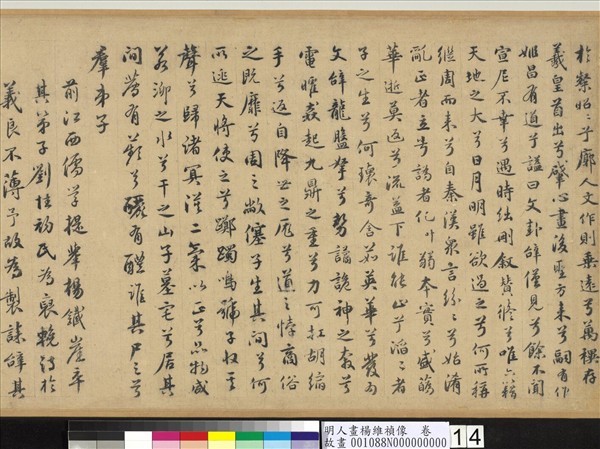 於粲昭〻乎廓人文作則垂遠兮萬禩存
羲皇首出兮肇心畫後聖方來兮嗣有作
姬昌有道兮諡曰文卦辭僅見兮餘不聞
宣尼不幸兮遇時絀刪叙贊修兮唯六籍
天地之大兮日月明雖欲過之兮何所稱
繼周而來兮自秦漢眾言紛〻兮始淆
亂正者立兮誘者化奉實兮盛落
華逝莫返兮流益下誰能止兮滔〻者
子之生兮何瓌奇含茹英華兮發為
文辭龍盤拏兮勢譎詭神之兮
電曜焱起九鼎之重兮力可扛胡縮
手兮返自降世之厖兮道之悖商俗
之既靡兮周之敝蹇子生其間兮何
以逃天將使之兮躑躅鳴號子收其
聲兮歸諸冥漠二氣以正兮品物咸
若泖之水兮干之山子墓宅兮居其
間有兮釃有醴誰其尸之兮
羣弟子
前江西儒學提舉楊鐵崖卒
其弟子劉性初氏為哀輓詩於
義良不薄予故為製誄辭其
明人畫楊維禎像　卷
故畫 001088N000000000
14